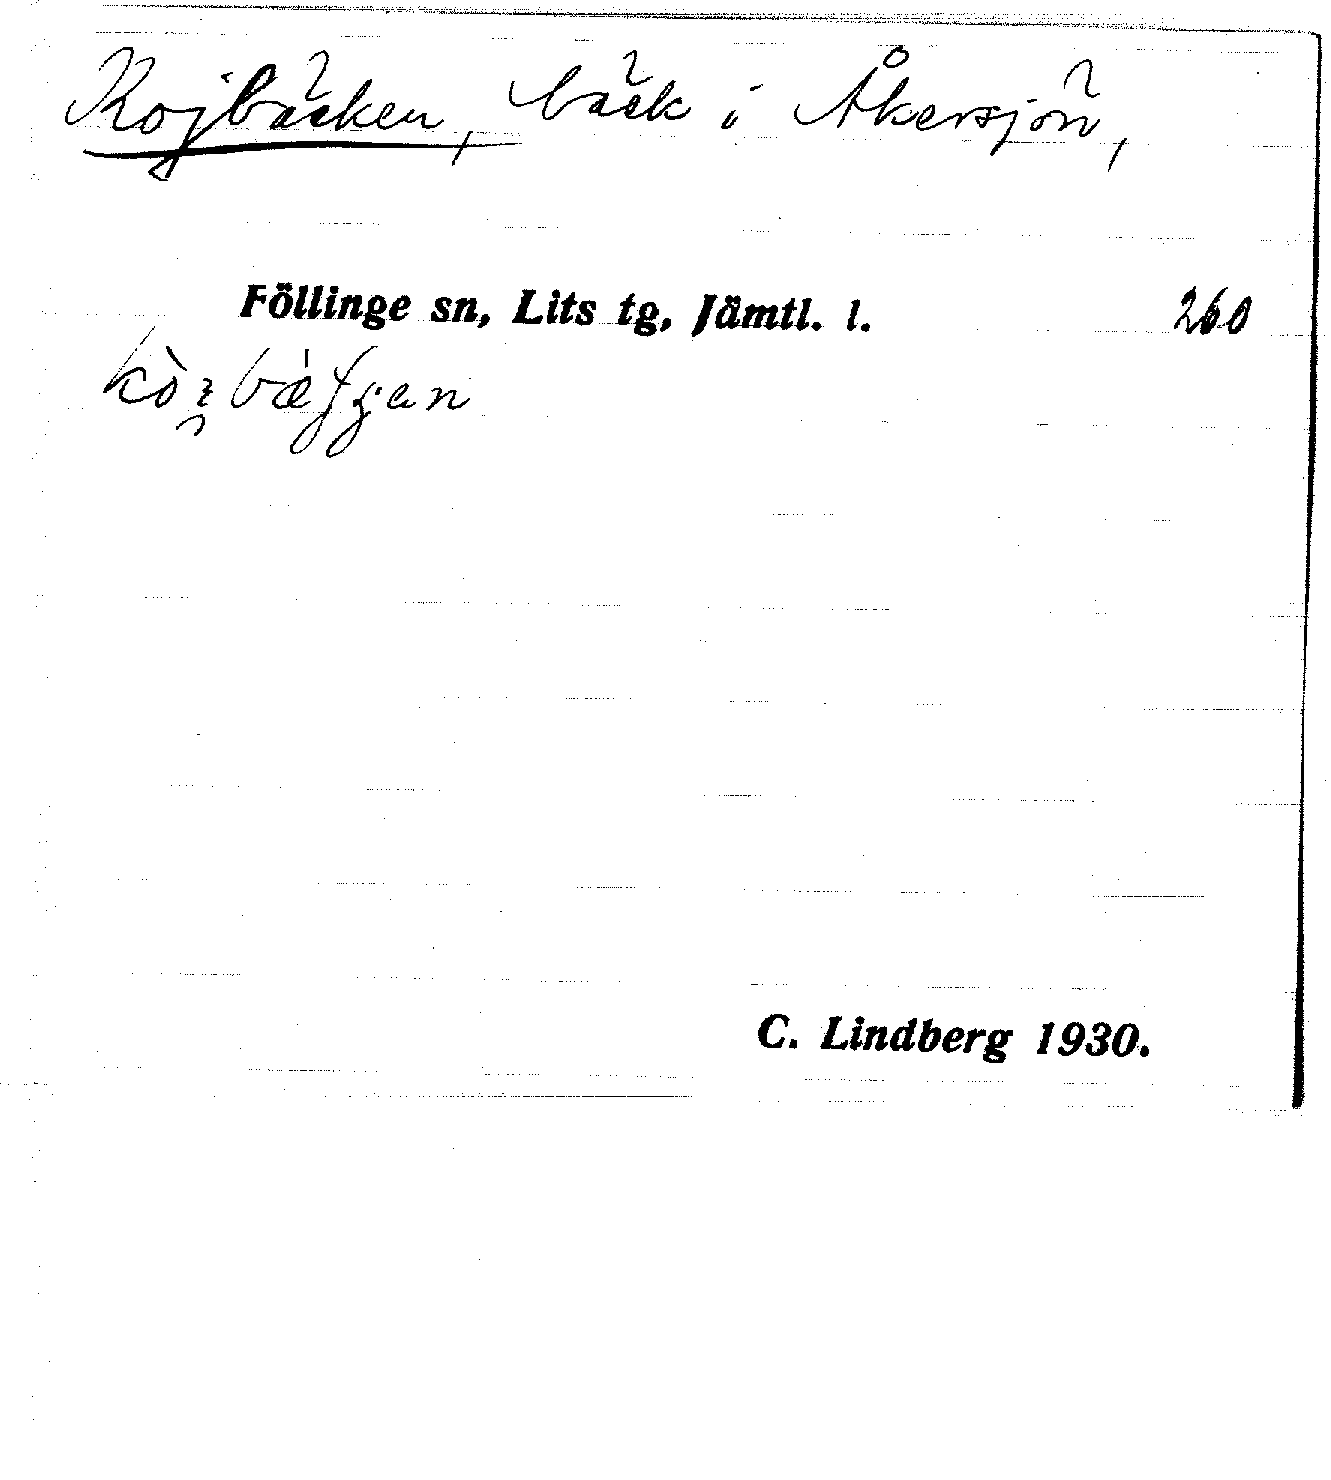 Kojbäcken, bäck i Åkersjön,
Föllinge sn, Lits tg, Jämtl. l. 260
C. Lindberg 1930.